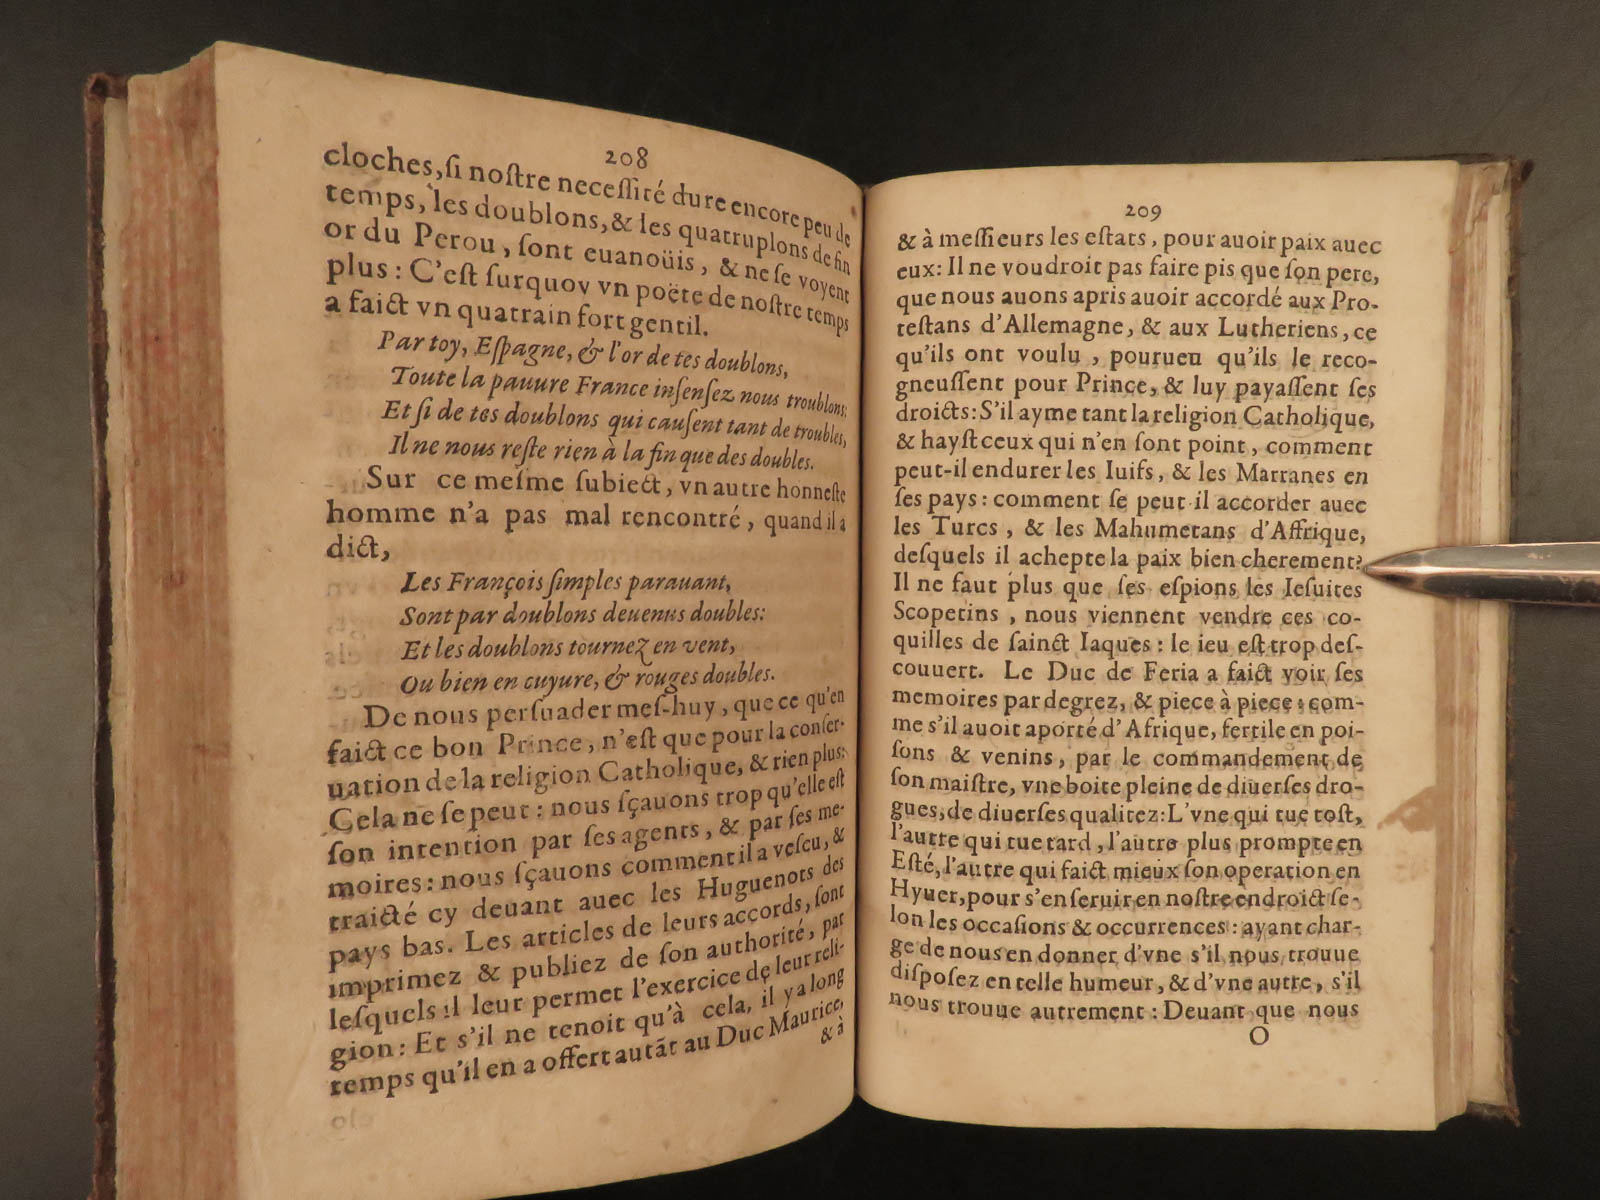 208
cloches, ſi noſtre neceſſité dure encore peu de
temps, les doublons, & les quatruplons de fin
or du Perou, ſont euanoüis, & ne ſe voyent
plus: C'eſt ſurquoy vn poëte de noſtre temps
a faict vn quatrain fort gentil.
Par toy, Eſpagne, & l'or de tes doublons,
Toute la pauure France inſenſez nous troublons:
Et ſi de tes doublons qui cauſent tant de troubles,
Il ne nous reſte rien à la fin que des doubles.
Sur ce meſme ſubiect, vn autre honneſte
homme n'a pas mal rencontré, quand il a
dict,
Les François ſimples parauant,
Sont par doublons deuenus doubles:
Et les doublons tournez en vent,
Ou bien en cuyure, & rouges doubles.
De nous perſuader meſ-huy, que ce qu'en
faict ce bon Prince, n'eſt que pour la conſer-
uation de la religion Catholique, & rien plus:
Cela ne ſe peut: nous ſçauons trop qu'elle eſt
ſon intention par ſes agents, & par ſes me-
moires: nous ſçauons comment il a veſcu, &
traicté cy deuant auec les Huguenots des
pays bas. Les articles de leurs accords, ſont
imprimez & publiez de ſon authorité, par
leſquels il leur permet l'exercice de leur reli-
gion: Et s'il ne tenoit qu'à cela, il y a long
temps qu'il en a offert autãt au Duc Maurice,
& à
209
& à meſſieurs les eſtats, pour auoir paix auec
eux: Il ne voudroit pas faire pis que ſon pere,
que nous auons apris auoir accordé aux Pro-
teſtans d'Allemagne, & aux Lutheriens, ce
qu'ils ont voulu, pourueu qu'ils le reco-
gneuſſent pour Prince, & luy payaſſent ſes
droicts: S'il ayme tant la religion Catholique,
& hayſt ceux qui n'en ſont point, comment
peut-il endurer les Iuifs, & les Marranes en
ſes pays: comment ſe peut il accorder auec
les Turcs, & les Mahumetans d'Affrique,
deſquels il achepte la paix bien cherement?
Il ne faut plus que ſes eſpions les Ieſuites
Scopetins, nous viennent vendre ces co-
quilles de ſainct Iaques: le ieu eſt trop deſ-
couuert. Le Duc de Feria a faict voir ſes
memoires par degrez, & piece à piece: com-
me s'il auoit aporté d'Afrique, fertile en poi-
ſons & venins, par le commandement de
ſon maiſtre, vne boite pleine de diuerſes dro-
gues, de diuerſes qualitez: L'vne qui tue toſt,
l'autre qui tue tard, l'autre plus prompte en
Eſté, l'autre qui faict mieux ſon operation en
Hyuer, pour s'en ſeruir en noſtre endroict ſe-
lon les occaſions & occurrences: ayant char-
ge de nous en donner d'vne s'il nous trouue
diſpoſez en telle humeur, & d'vne autre, s'il
nous trouue autrement: Deuant que nous
O